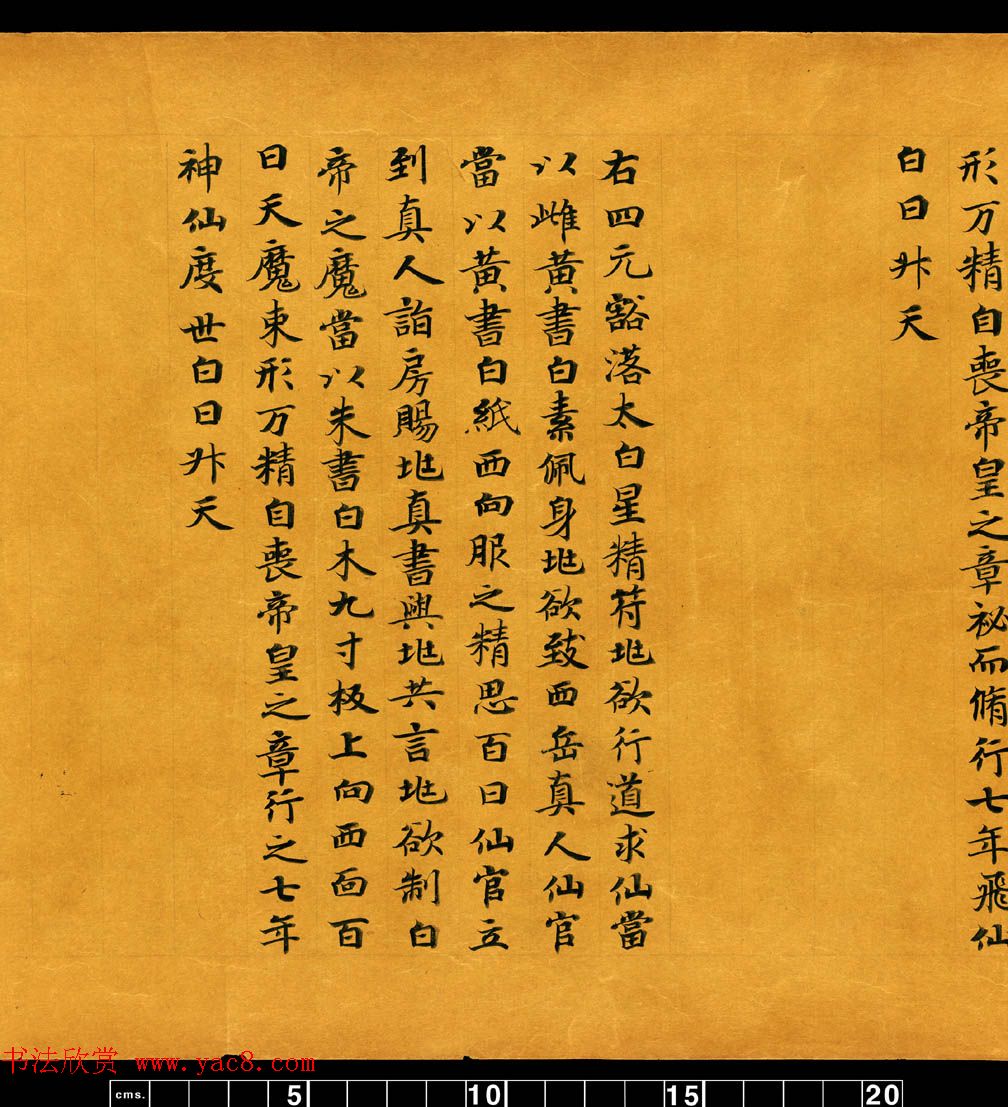 形万精自喪帝皇之章祕而脩行七年飛仙
白日升天
右四元豁落太白星精符兆欲行道求仙當
以雌黃書白素佩身兆欲致西岳真人仙官
當以黃書白紙西向服之精思百日仙官立
到真人詣房賜兆真書與兆共言兆欲制白
帝之魔當以朱書白木九寸板上向西面百
日天魔束形万精自喪帝皇之章行之七年
神仙度世白日升天
书法欣赏 www.yac8.com
cms. 5 10 15 20